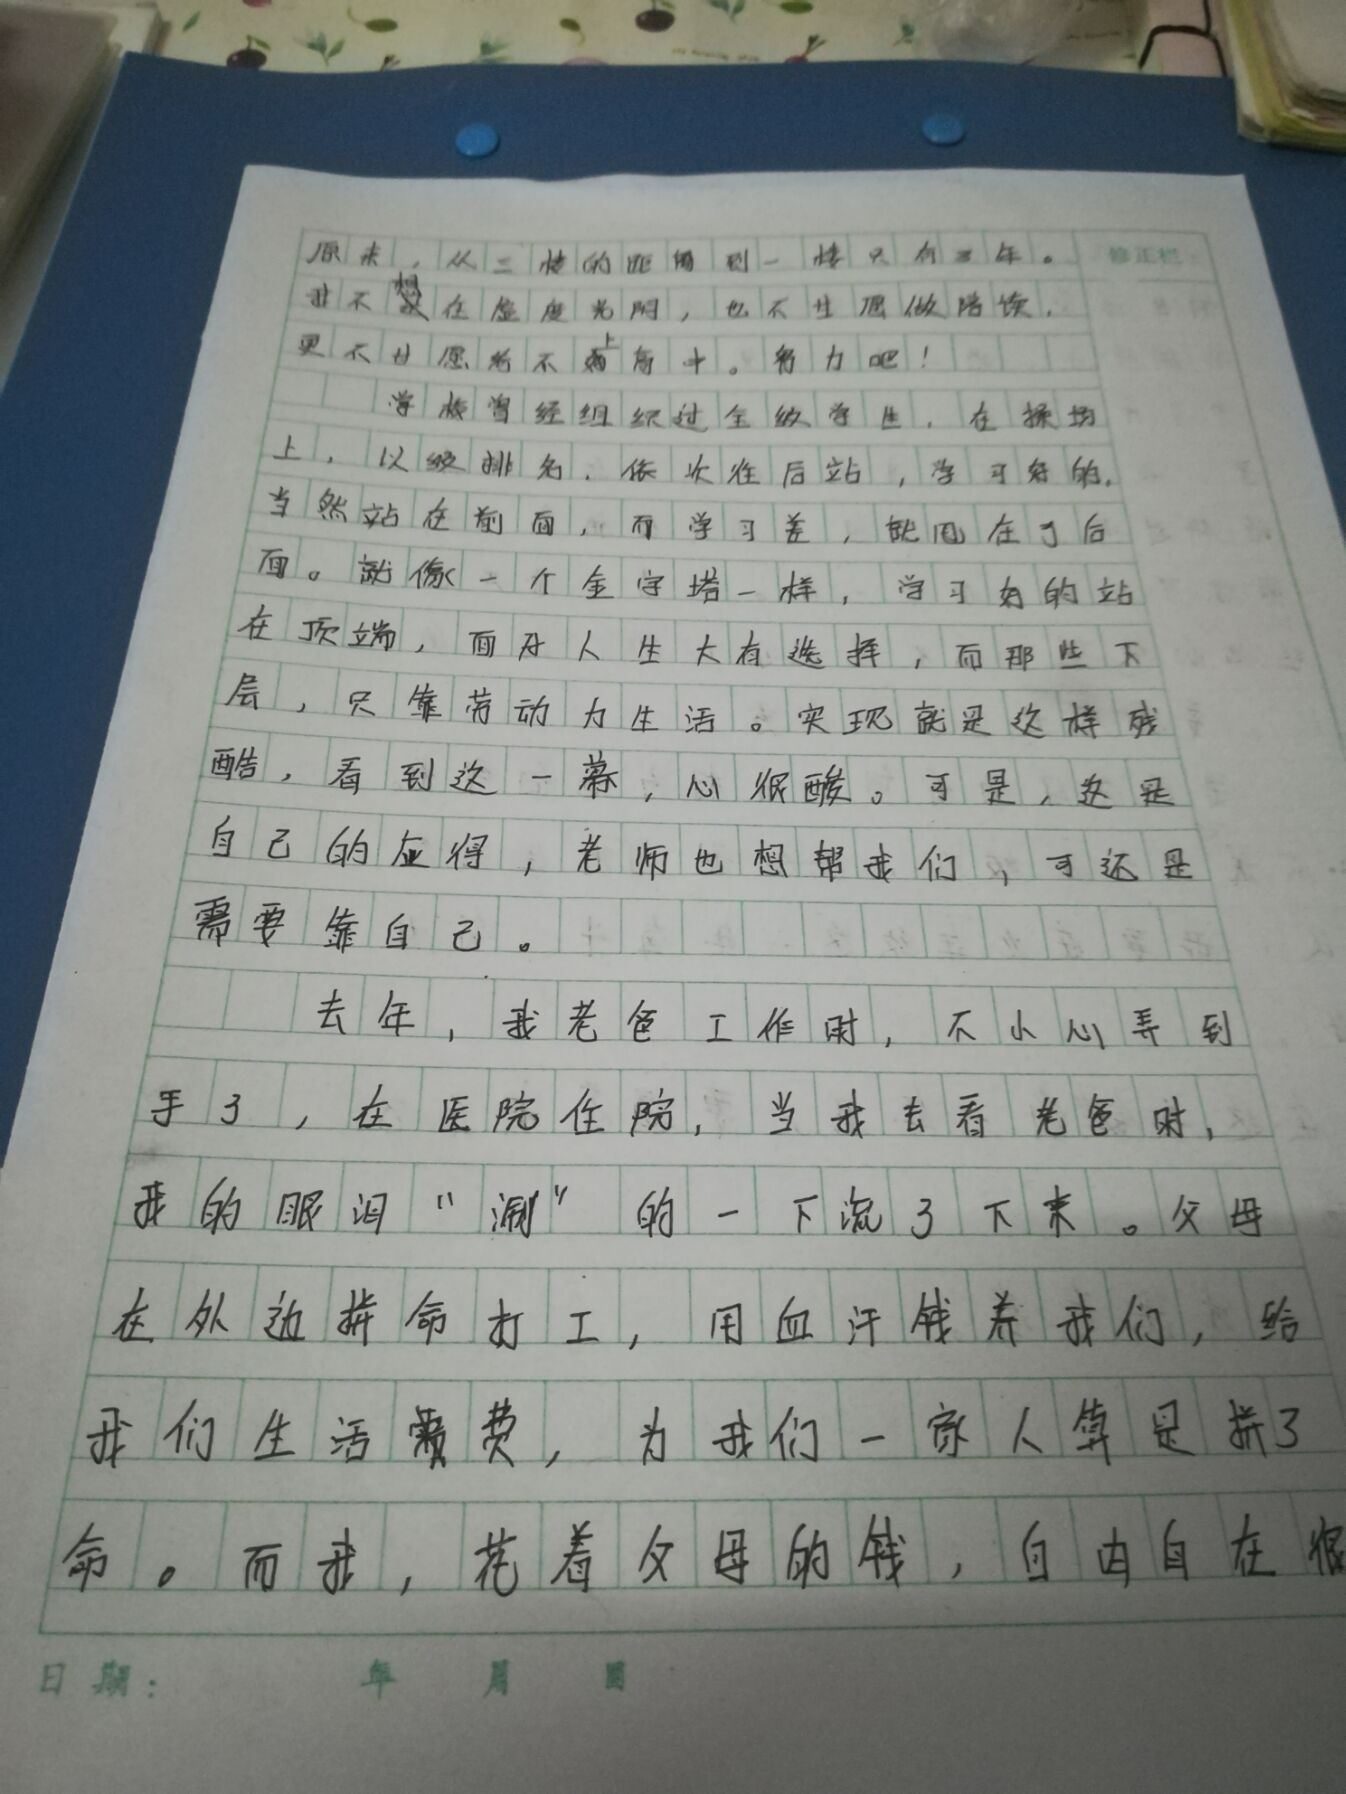 原来，从三楼的距离到一楼只有三年。
修正栏
我不想在虚度光阴，也不甘愿做陪读，
更不甘愿考不上高中。努力吧！
学校曾经组织过全级学生，在操场
上，以级排名，依次往后站，学习好的，
当然站在前面，而学习差，就甩在了后
面。就像一个金字塔一样，学习好的站
在顶端，面对人生大有选择，而那些下
层，只靠劳动力生活。实现就是这样残
酷，看到这一幕，心很酸。可是，这是
自己的应得，老师也想帮我们，可还是
需要靠自己。
去年，我老爸工作时，不小心弄到
手了，在医院住院，当我去看老爸时，
我的眼泪“涮”的一下流了下来。父母
在外边拼命打工，用血汗钱养我们，给
我们生活费，为我们一家人算是拼了
命。而我，花着父母的钱，自由自在很
日期： 年 月 日